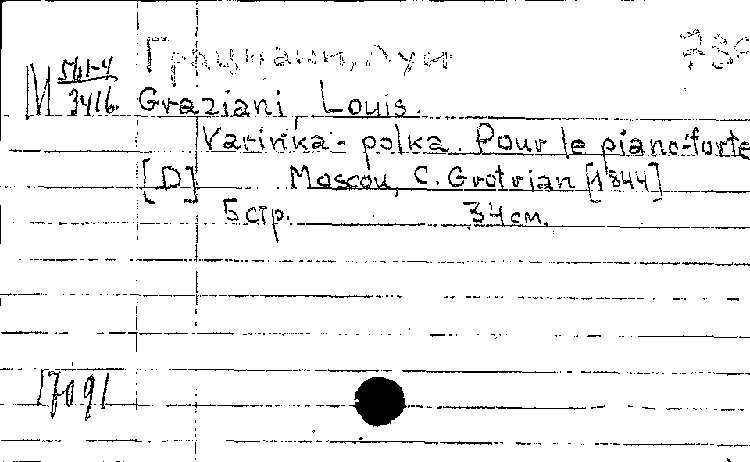 Грациани, Луи 730
М 561-4/3416. Graziani, Louis.
Varinka-polka. Pour le piano-forte
[D] Moscou, C. Grotrian [1844]
5 стр. 34 см.
17091